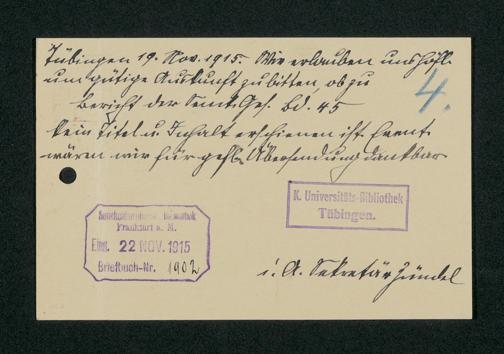 Tübingen 19. Nov. 1915. Wir erlauben uns höfl.
um gütige Auskunft zu bitten, ob zu
Bericht der Senck. Ges. Bd. 45
kein Titel u. Inhalt erschienen ist. Event.
wären wir für gefl. Übersendung dankbar
4.
K. Universitäts-Bibliothek
Tübingen.
Senckenbergische Bibliothek
Frankfurt a. M.
Eing. 22 NOV. 1915
Briefbuch-Nr. 1902
i. A. Sekretär Zündel